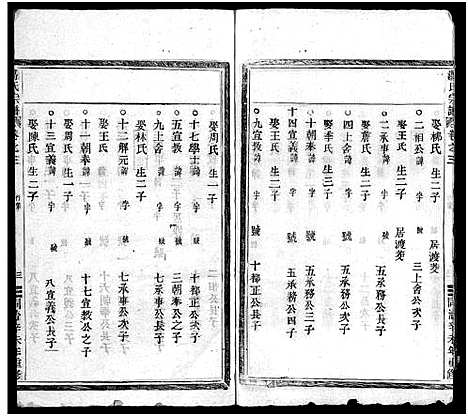 氏宗譜 卷之三
娶楊氏 生二子 居渡菱
二相公 諱 字 號 三上舍公次子
娶王氏 生二子 居渡菱
二承事 諱 字 號 四承務公長子
娶詹氏 生二子
四上舍 諱 字 號 五承務公次子
娶季氏 生三子
十朝奉 諱 字 號 五承務公三子
娶王氏 生一子
九宣教 諱 字 號 十都正公長子
娶周氏 生一子
十七學士 諱 字 號 十都正公次子
五宣教 諱 字 號 二朝奉公之子
九上舍 諱 字 號 七承事公長子
娶林氏 生二子
十二解元 諱 字 號 七承事公次子
娶王氏 生二子
十一朝奉 諱 字 號 十七宣教公之子
娶周氏 生一子
十三宣義 諱 字 號 八宣義公長子
娶陳氏 生二子
氏宗譜 卷之三
行第
三
同治辛未年重修